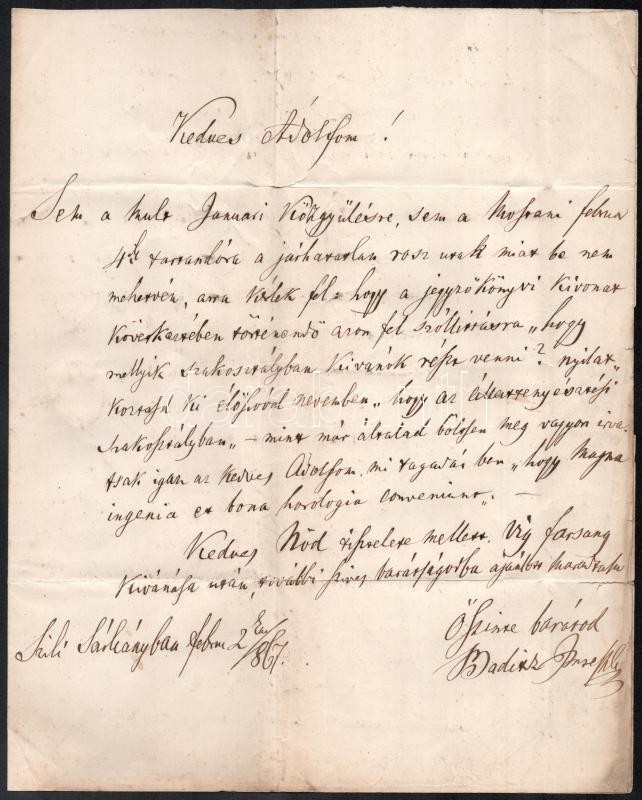 Kedves Adolfom!
Sem a mult Januari Közgyülésre, sem a Mosoni februa
4ki tartandóra a járhatatlan rosz utak miat be nem
mehetvén, arra kérlek fel: hogy a jegyzökönyvi kivonat
következtében történendö azon fel szóllittásra „hogy
mellyik szakosztályban kivánok részt venni? nyilat„
koztasd ki élöszóval nevemben„ hogy az állattenyésztési
szakosztályban„ – mint már általad bölcsen meg vagyon irva.
tsak igaz az kedves Adolfom, mi tagadás ben „hogy Magna
ingenia et bona horologia conveniunt„. –
Kedves Nöd tisztelete mellett, vig farsang
kivánása után, további szives barátságodba ajánlva maradtam
Szili Sárkányban febru 2kán/867.
Öszinte barátod
Baditz